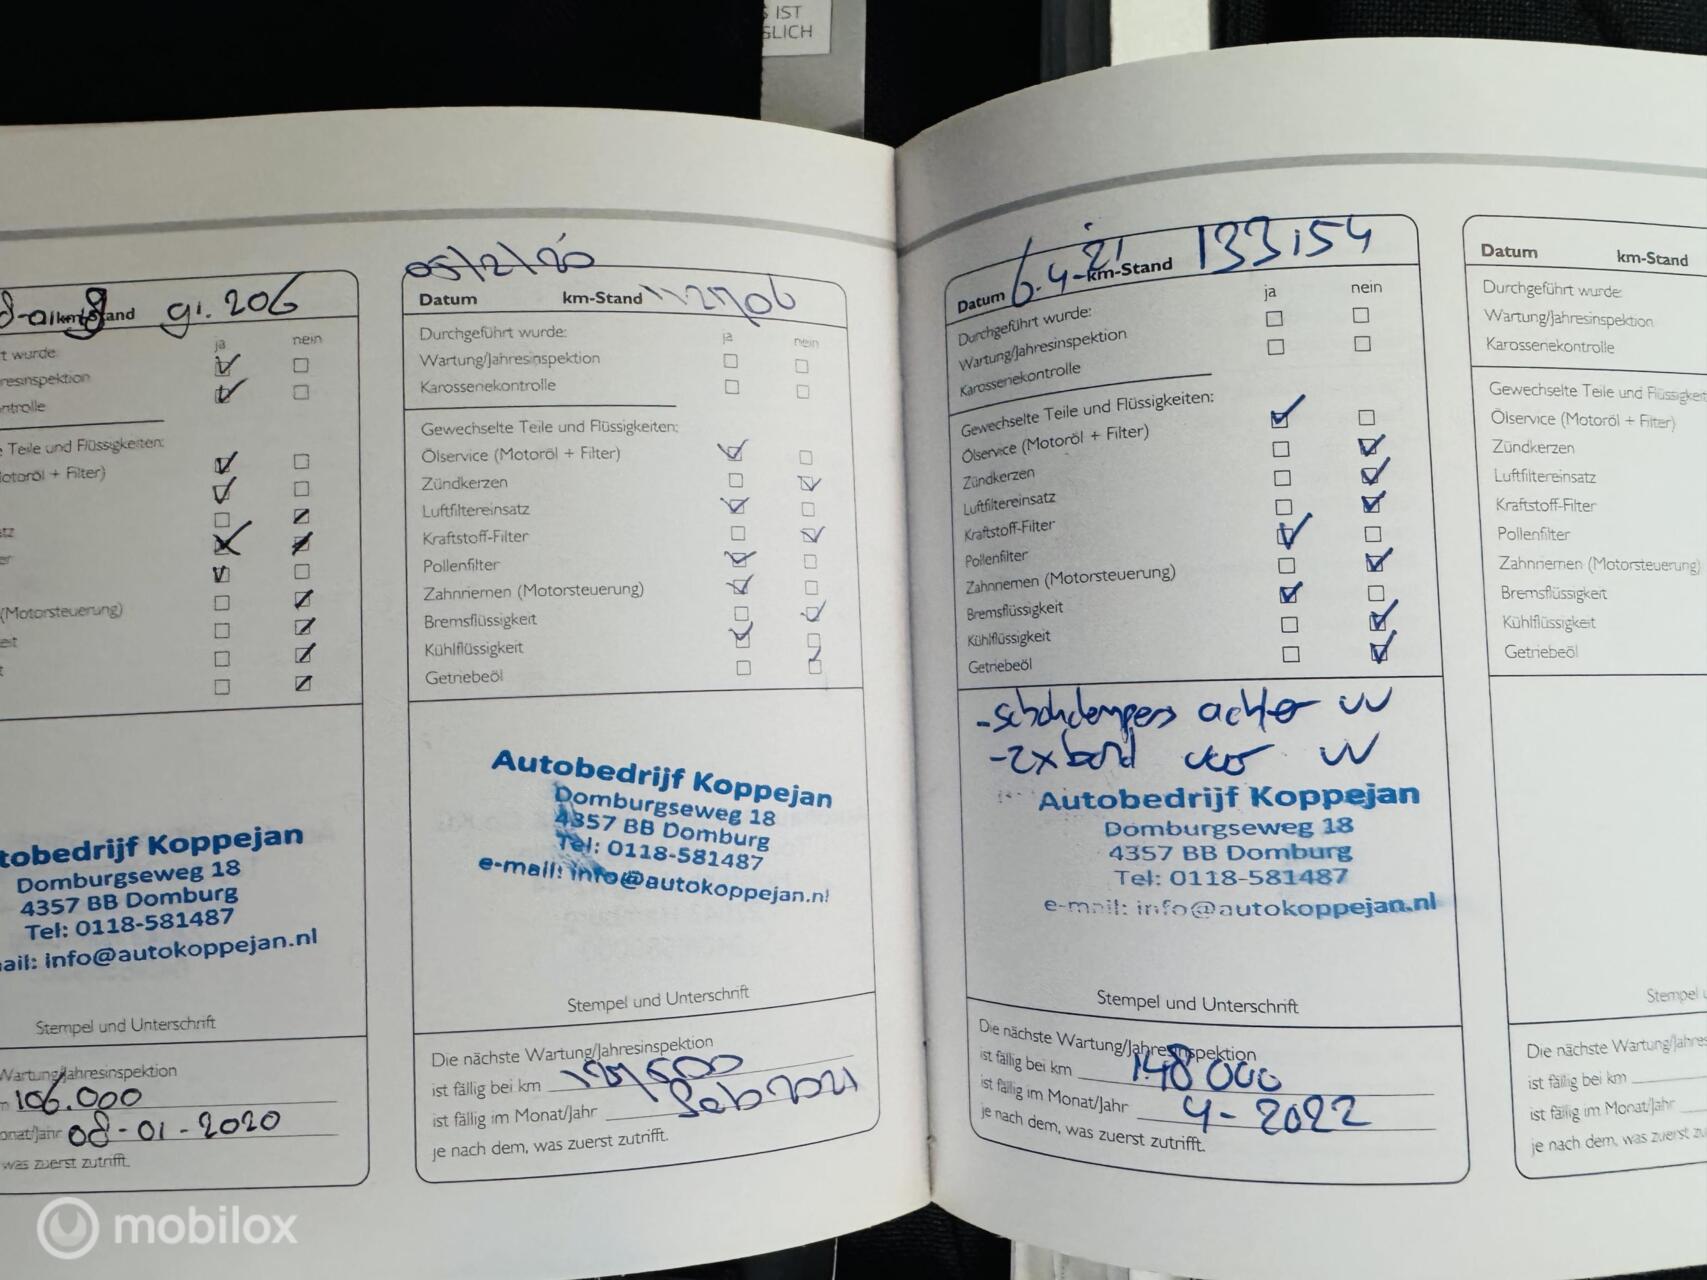 S IST
GLICH
91.206
ja nein
t wurde:
resinspektion
ntrolle
e Teile und Flüssigkeiten:
otoröl + Filter)
tz
er
(Motorsteuerung)
eit
t
tobedrijf Koppejan
Domburgseweg 18
4357 BB Domburg
Tel: 0118-581487
ail: info@autokoppejan.nl
Stempel und Unterschrift
Wartung/Jahresinspektion
m 106.000
onat/Jahr 08-01-2020
was zuerst zutrifft.
05/2/20
Datum km-Stand
Durchgeführt wurde: ja nein
Wartung/Jahresinspektion
Karosseriekontrolle
Gewechselte Teile und Flüssigkeiten:
Ölservice (Motoröl + Filter)
Zündkerzen
Luftfiltereinsatz
Kraftstoff-Filter
Pollenfilter
Zahnriemen (Motorsteuerung)
Bremsflüssigkeit
Kühlflüssigkeit
Getriebeöl
Autobedrijf Koppejan
Domburgseweg 18
4357 BB Domburg
Tel: 0118-581487
e-mail: info@autokoppejan.nl
Stempel und Unterschrift
Die nächste Wartung/Jahresinspektion
ist fällig bei km
ist fällig im Monat/Jahr Feb 2021
je nach dem, was zuerst zutrifft.
Datum 6-4-21 km-Stand 133154
ja nein
Durchgeführt wurde:
Wartung/Jahresinspektion
Karosseriekontrolle
Gewechselte Teile und Flüssigkeiten:
Ölservice (Motoröl + Filter)
Zündkerzen
Luftfiltereinsatz
Kraftstoff-Filter
Pollenfilter
Zahnriemen (Motorsteuerung)
Bremsflüssigkeit
Kühlflüssigkeit
Getriebeöl
- schokdempers achter vv
- 2x band voor vv
Autobedrijf Koppejan
Domburgseweg 18
4357 BB Domburg
Tel: 0118-581487
e-mail: info@autokoppejan.nl
Stempel und Unterschrift
Die nächste Wartung/Jahresinspektion
ist fällig bei km 148000
ist fällig im Monat/Jahr 4-2022
je nach dem, was zuerst zutrifft.
Datum km-Stand
Durchgeführt wurde:
Wartung/Jahresinspektion
Karosseriekontrolle
Gewechselte Teile und Flüssigkeit
Ölservice (Motoröl + Filter)
Zündkerzen
Luftfiltereinsatz
Kraftstoff-Filter
Pollenfilter
Zahnriemen (Motorsteuerung)
Bremsflüssigkeit
Kühlflüssigkeit
Getriebeöl
Stempel u
Die nächste Wartung/Jahres
ist fällig bei km
ist fällig im Monat/Jahr
je nach dem, was zuerst zu
mobilox